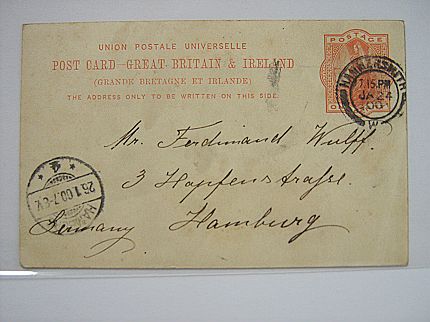 UNION POSTALE UNIVERSELLE
POST CARD—GREAT BRITAIN & IRELAND
(GRANDE BRETAGNE ET IRLANDE)
THE ADDRESS ONLY TO BE WRITTEN ON THIS SIDE.
POSTAGE
HAMMERSMITH
7.15.PM
JA 24
00
W
Mr. Ferdinand Wulff.
3 Hopfenstrasse.
Hamburg
Germany
26.1.00.7-8V.